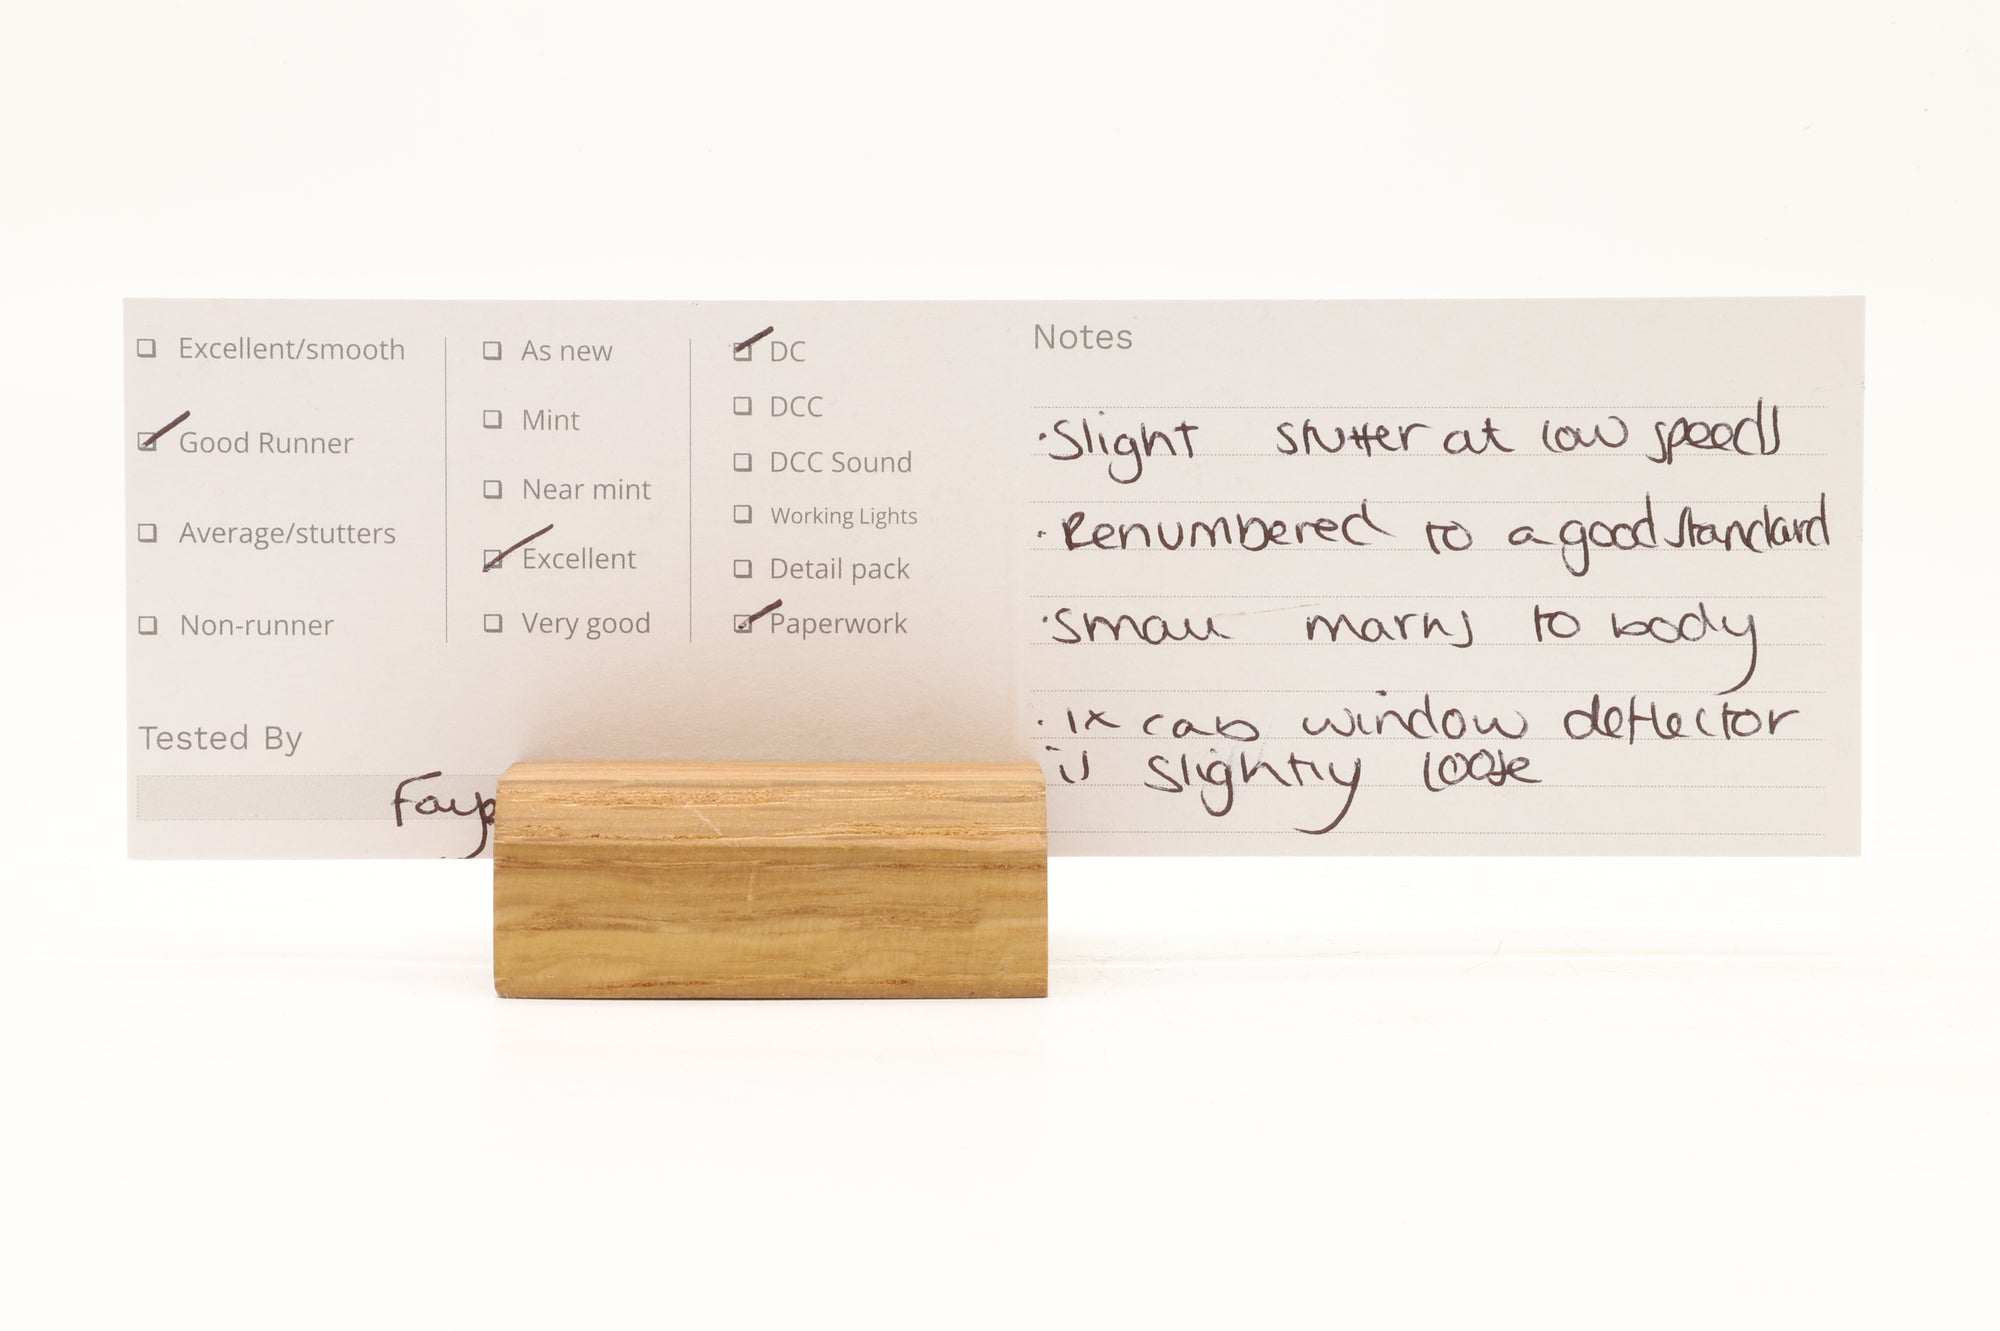 Excellent/smooth
Good Runner
Average/stutters
Non-runner
As new
Mint
Near mint
Excellent
Very good
DC
DCC
DCC Sound
Working Lights
Detail pack
Paperwork
Tested By
Faye
Notes
·Slight stutter at low speeds
·Renumbered to a good standard
·small marks to body
·1x cab window deflector
is slightly loose